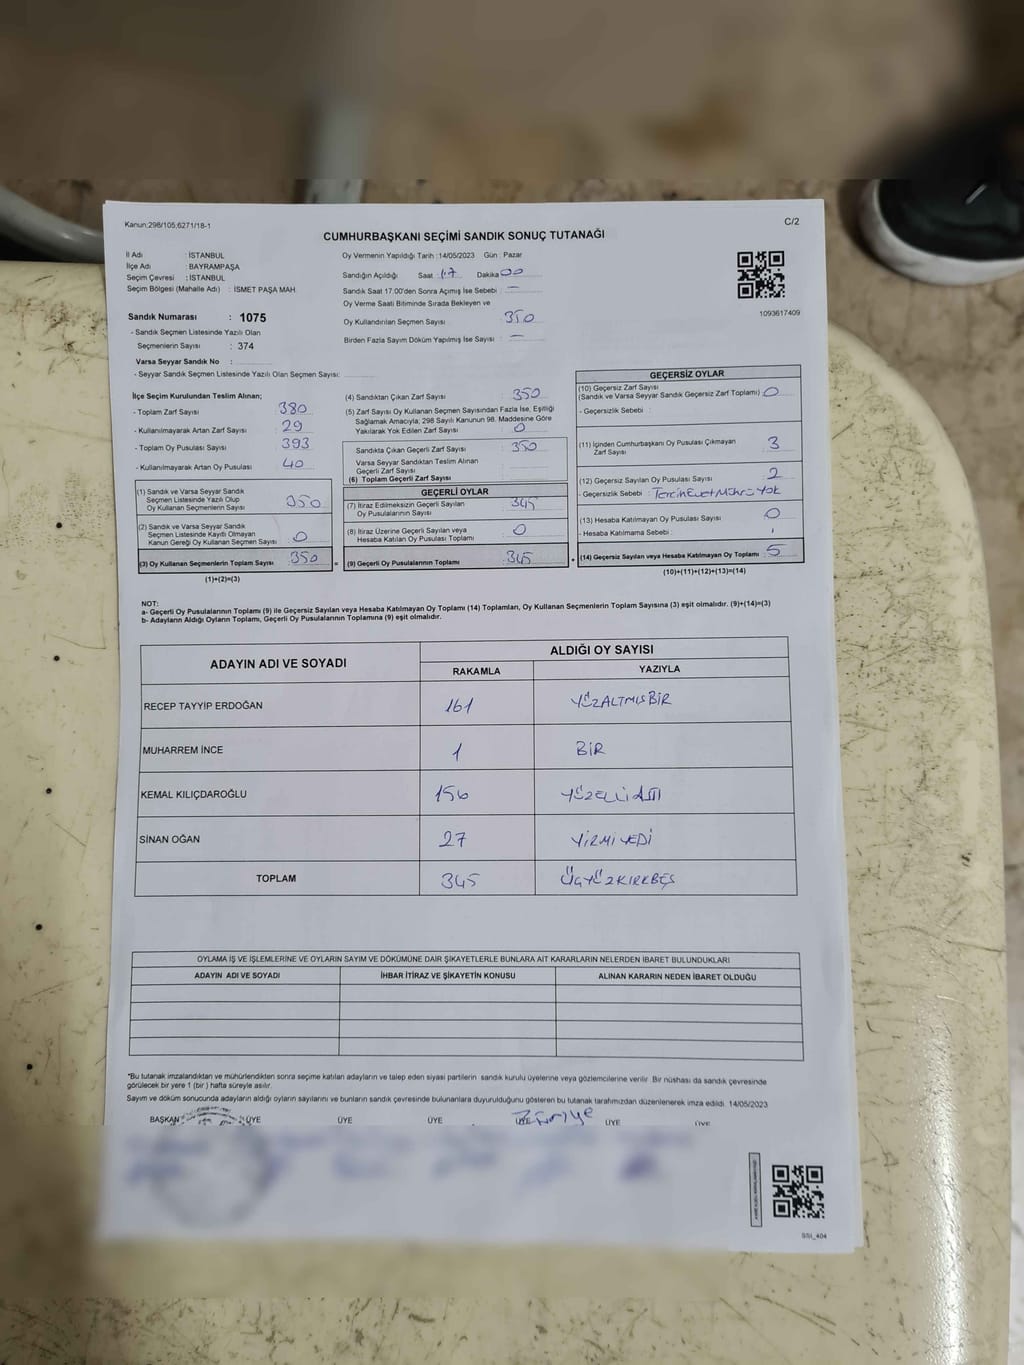 Kanun;298/105;6271/18-1
C/2
CUMHURBAŞKANI SEÇİMİ SANDIK SONUÇ TUTANAĞI
İl Adı : İSTANBUL
İlçe Adı : BAYRAMPAŞA
Seçim Çevresi : İSTANBUL
Seçim Bölgesi (Mahalle Adı) : İSMET PAŞA MAH.
Sandık Numarası : 1075
- Sandık Seçmen Listesinde Yazılı Olan
Seçmenlerin Sayısı : 374
Varsa Seyyar Sandık No :
- Seyyar Sandık Seçmen Listesinde Yazılı Olan Seçmen Sayısı:
Oy Vermenin Yapıldığı Tarih :14/05/2023 Gün : Pazar
Sandığın Açıldığı Saat : 17 Dakika 00
Sandık Saat 17.00'den Sonra Açımış İse Sebebi : —
Oy Verme Saati Bitiminde Sırada Bekleyen ve
Oy Kullandırılan Seçmen Sayısı : 350
Birden Fazla Sayım Döküm Yapılmış İse Sayısı : —
1093617409
İlçe Seçim Kurulundan Teslim Alınan;
- Toplam Zarf Sayısı : 380
- Kullanılmayarak Artan Zarf Sayısı : 29
- Toplam Oy Pusulası Sayısı : 393
- Kullanılmayarak Artan Oy Pusulası : 40
(1) Sandık ve Varsa Seyyar Sandık
Seçmen Listesinde Yazılı Olup
Oy Kullanan Seçmenlerin Sayısı 350
(2) Sandık ve Varsa Seyyar Sandık
Seçmen Listesinde Kayıtlı Olmayan
Kanun Gereği Oy Kullanan Seçmen Sayısı 0
(3) Oy Kullanan Seçmenlerin Toplam Sayısı 350
(1)+(2)=(3)
=
(4) Sandıktan Çıkan Zarf Sayısı : 350
(5) Zarf Sayısı Oy Kullanan Seçmen Sayısından Fazla İse, Eşitliği
Sağlamak Amacıyla; 298 Sayılı Kanunun 98. Maddesine Göre
Yakılarak Yok Edilen Zarf Sayısı : 0
Sandıkta Çıkan Geçerli Zarf Sayısı : 350
Varsa Seyyar Sandıktan Teslim Alınan
Geçerli Zarf Sayısı
(6) Toplam Geçerli Zarf Sayısı
GEÇERLİ OYLAR
(7) İtiraz Edilmeksizin Geçerli Sayılan
Oy Pusulalarının Sayısı 345
(8) İtiraz Üzerine Geçerli Sayılan veya
Hesaba Katılan Oy Pusulası Toplamı 0
(9) Geçerli Oy Pusulalarının Toplamı 345
+
GEÇERSİZ OYLAR
(10) Geçersiz Zarf Sayısı
(Sandık ve Varsa Seyyar Sandık Geçersiz Zarf Toplamı) : 0
- Geçersizlik Sebebi :
(11) İçinden Cumhurbaşkanı Oy Pusulası Çıkmayan
Zarf Sayısı : 3
(12) Geçersiz Sayılan Oy Pusulası Sayısı : 2
- Geçersizlik Sebebi : Tercih Evet Mührü Yok
(13) Hesaba Katılmayan Oy Pusulası Sayısı : 0
- Hesaba Katılmama Sebebi :
(14) Geçersiz Sayılan veya Hesaba Katılmayan Oy Toplamı : 5
(10)+(11)+(12)+(13)=(14)
NOT:
a- Geçerli Oy Pusulalarının Toplamı (9) ile Geçersiz Sayılan veya Hesaba Katılmayan Oy Toplamı (14) Toplamları, Oy Kullanan Seçmenlerin Toplam Sayısına (3) eşit olmalıdır. (9)+(14)=(3)
b- Adayların Aldığı Oyların Toplamı, Geçerli Oy Pusulalarının Toplamına (9) eşit olmalıdır.
ADAYIN ADI VE SOYADI
ALDIĞI OY SAYISI
RAKAMLA YAZIYLA
RECEP TAYYİP ERDOĞAN 161 YÜZALTMIŞBİR
MUHARREM İNCE 1 BİR
KEMAL KILIÇDAROĞLU 156 YÜZELLİALTI
SİNAN OĞAN 27 YİRMİYEDİ
TOPLAM 345 ÜÇYÜZKIRKBEŞ
OYLAMA İŞ VE İŞLEMLERİNE VE OYLARIN SAYIM VE DÖKÜMÜNE DAİR ŞİKAYETLERLE BUNLARA AİT KARARLARIN NELERDEN İBARET BULUNDUKLARI
ADAYIN ADI VE SOYADI İHBAR İTİRAZ VE ŞİKAYETİN KONUSU ALINAN KARARIN NEDEN İBARET OLDUĞU
*Bu tutanak imzalandıktan ve mühürlendikten sonra seçime katılan adayların ve talep eden siyasi partilerin sandık kurulu üyelerine veya gözlemcilerine verilir. Bir nüshası da sandık çevresinde
görülecek bir yere 1 (bir) hafta süreyle asılır.
Sayım ve döküm sonucunda adayların aldığı oyların sayılarını ve bunların sandık çevresinde bulunanlara duyurulduğunu gösteren bu tutanak tarafımızdan düzenlenerek imza edildi. 14/05/2023
BAŞKAN ÜYE ÜYE ÜYE ÜYE ÜYE ÜYE
SSI_404